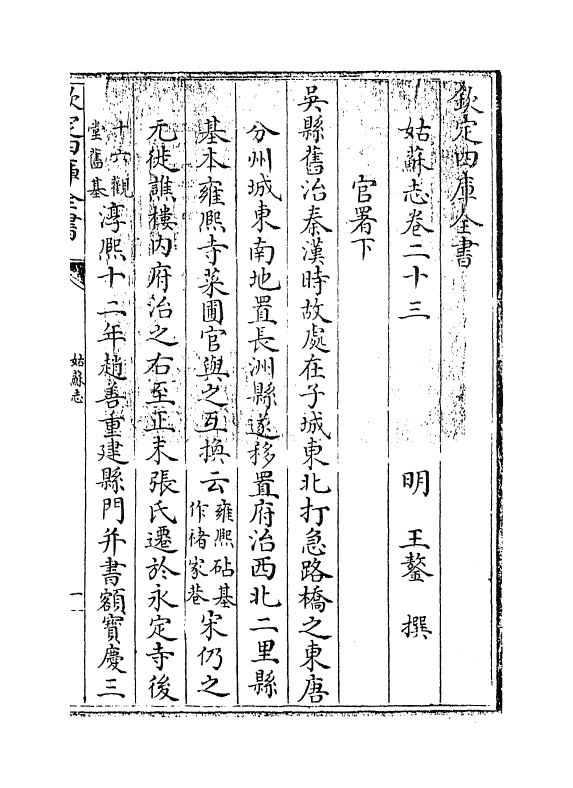 欽定四庫全書
姑蘇志卷二十三
明 王鏊 撰
官署下
吳縣舊治秦漢時故處在子城東北打急路橋之東唐
分州城東南地置長洲縣遂移置府治西北二里縣
基本雍熙寺菜圃官與之互換云雍熙砧基作禇家巷宋仍之
元徙譙樓内府治之右至正末張氏遷於永定寺後
十六觀堂舊基淳熈十二年趙善重建縣門并書額寳慶三
欽定四庫全書
姑蘇志
一